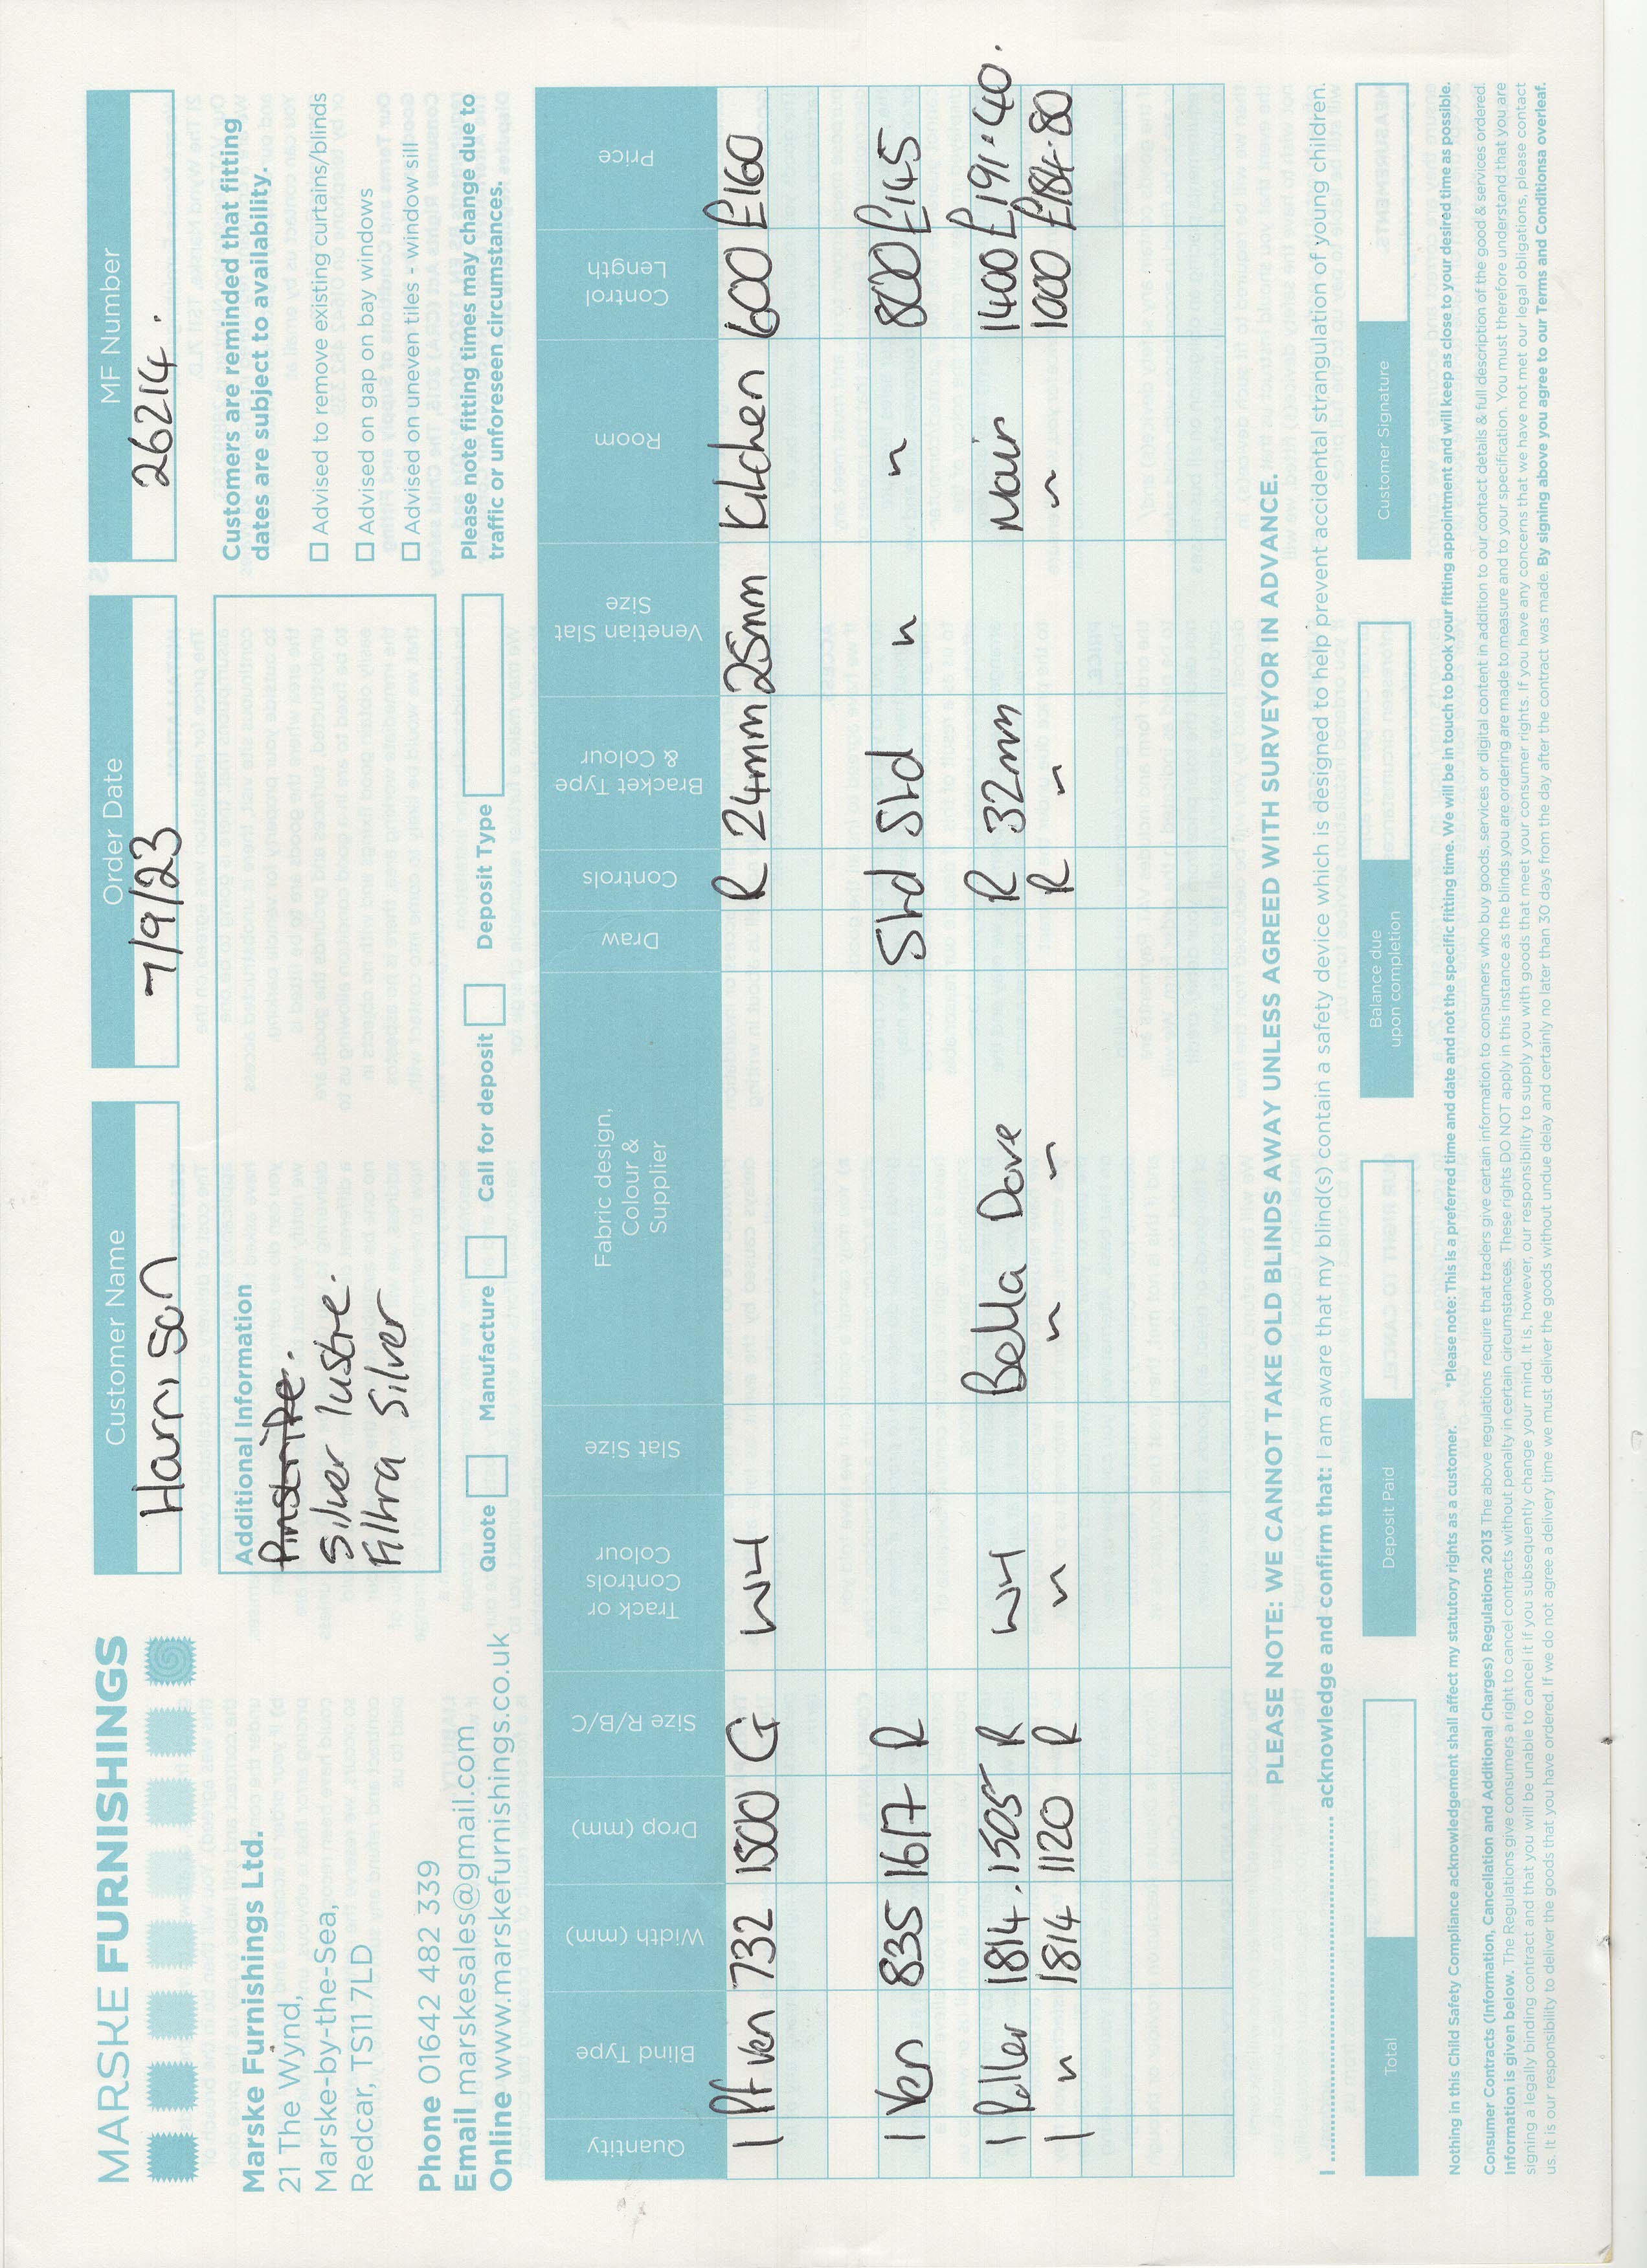 MARSKE FURNISHINGS
Marske Furnishings Ltd.
21 The Wynd,
Marske-by-the-Sea,
Redcar, TS11 7LD
Phone 01642 482 339
Email marskesales@gmail.com
Online www.marskefurnishings.co.uk
Customer Name
Harrison
Order Date
7/9/23
MF Number
26214.
Additional Information
Pinstripe.
Silver lustre.
Filtra Silver
Customers are reminded that fitting
dates are subject to availability.
Advised to remove existing curtains/blinds
Advised on gap on bay windows
Advised on uneven tiles - window sill
Please note fitting times may change due to
traffic or unforeseen circumstances.
Quote Manufacture Call for deposit Deposit Type
Quantity Blind Type Width (mm) Drop (mm) Size R/B/C Track or Controls Colour Slat Size Fabric design, Colour & Supplier Draw Controls Bracket Type & Colour Venetian Slat Size Room Control Length Price
1 Pf Ven 732 1500 G WH R 24mm 25mm Kitchen 600 £160
1 Ven 835 1617 R Std Std " " 800 £145
1 Roller 1814. 1505 R WH Bella Dove R 32mm Nair 1400 £191.40.
1 " 1814 1120 R " " " R " " 1000 £184.80
PLEASE NOTE: WE CANNOT TAKE OLD BLINDS AWAY UNLESS AGREED WITH SURVEYOR IN ADVANCE.
I .......... acknowledge and confirm that: I am aware that my blind(s) contain a safety device which is designed to help prevent accidental strangulation of young children.
Total Deposit Paid Balance due upon completion Customer Signature
Nothing in this Child Safety Compliance acknowledgement shall affect my statutory rights as a customer. *Please note: This is a preferred time and date and not the specific fitting time. We will be in touch to book your fitting appointment and will keep as close to your desired time as possible.
Consumer Contracts (Information, Cancellation and Additional Charges) Regulations 2013 The above regulations require that traders give certain information to consumers who buy goods, services or digital content in addition to our contact details & full description of the good & services ordered.
Information is given below. The Regulations give consumers a right to cancel contracts without penalty in certain circumstances. These rights DO NOT apply in this instance as the blinds you are ordering are made to measure and to your specification. You must therefore understand that you are
signing a legally binding contract and that you will be unable to cancel it if you subsequently change your mind. It is, however, our responsibility to supply you with goods that meet your consumer rights. If you have any concerns that we have not met our legal obligations, please contact
us. It is our responsibility to deliver the goods that you have ordered. If we do not agree a delivery time we must deliver the goods without undue delay and certainly no later than 30 days from the day after the contract was made. By signing above you agree to our Terms and Conditionsa overleaf.